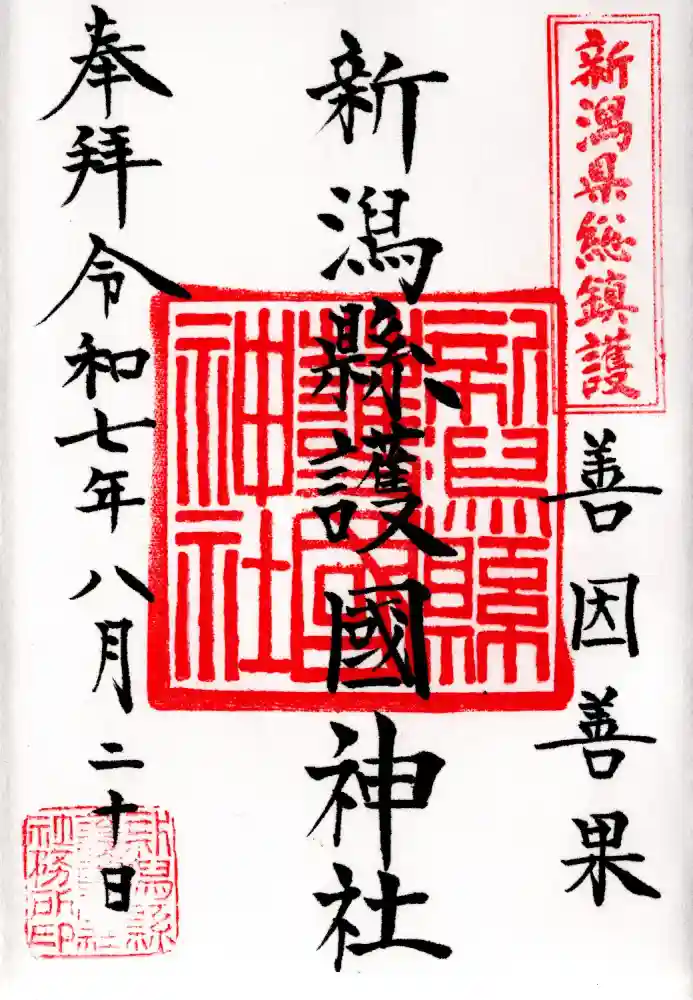 新潟県総鎮護
善因善果
新潟縣護國神社
新潟縣護國神社
奉拝令和七年八月二十日
新潟縣護國神社社務所印